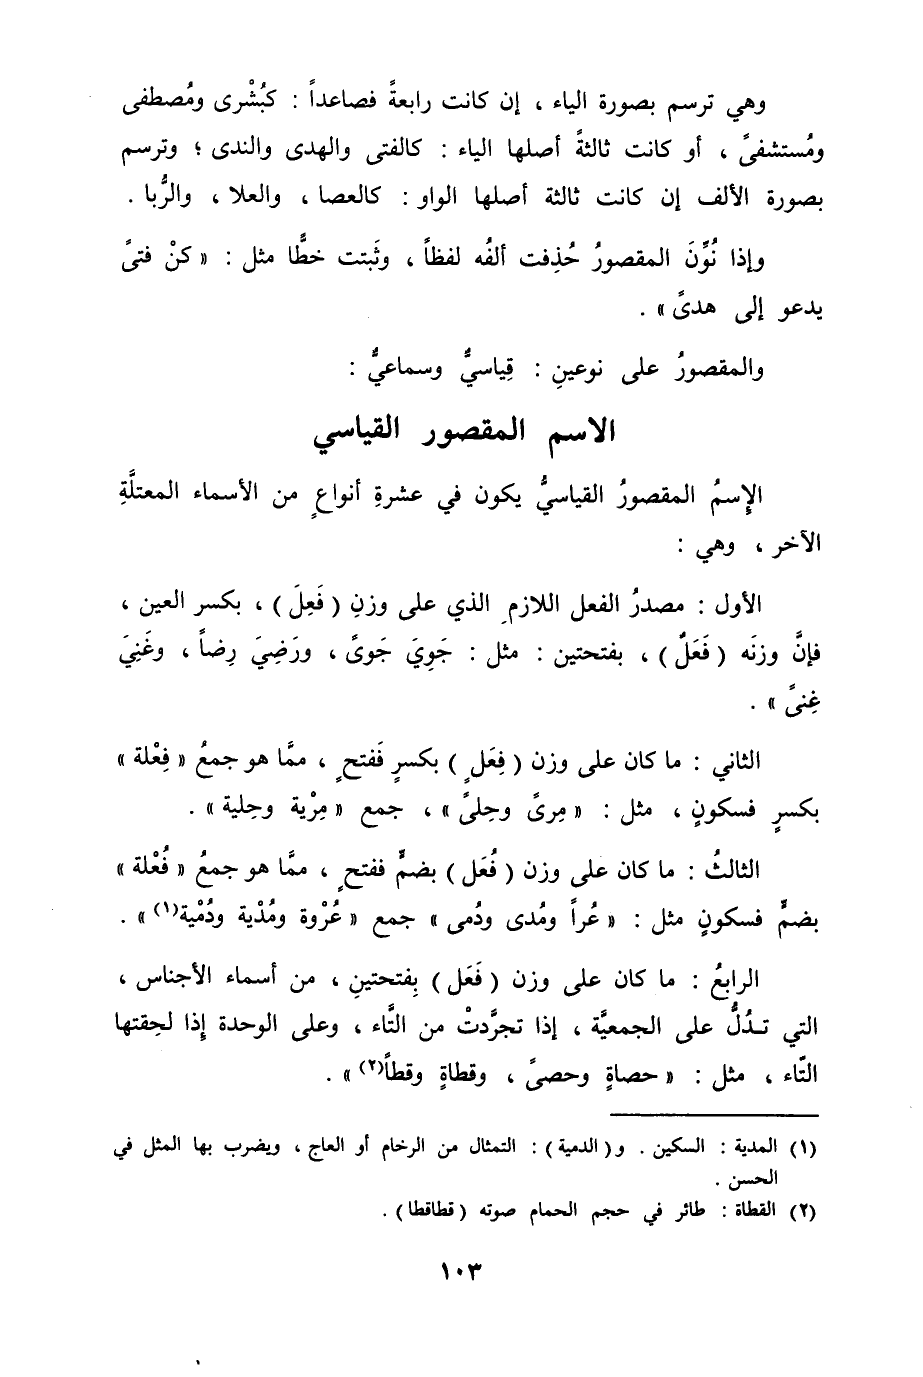 وهي ترسم بصورة الياء ، إن كانت رابعةً فصاعداً : كبُشْرى ومُصطفى
ومُستشفىً ، أو كانت ثالثةً أصلها الياء : كالفتى والهدى والندى ؛ وترسم
بصورة الألف إن كانت ثالثة أصلها الواو : كالعصا ، والعلا ، والرُّبا .
وإذا نُوِّنَ المقصورُ حُذِفت ألفُه لفظاً ، وثَبتت خطًّا مثل : « كنْ فتىً
يدعو إلى هدىً » .
والمقصورُ على نوعينِ : قِياسيٌّ وسماعيٌّ :
الاسم المقصور القياسي
الإسمُ المقصورُ القياسيُّ يكون في عشرةِ أنواعٍ من الأسماء المعتلَّةِ
الآخر ، وهي :
الأول : مصدرُ الفعل اللازمِ الذي على وزنِ ( فَعِلَ ) ، بكسر العين ،
فإنَّ وزنَه ( فَعَلٌ ) ، بفتحتين : مثل : جَوِيَ جَوىً ، ورَضِيَ رِضاً ، وغَنِيَ
غِنىً » .
الثاني : ما كان على وزن ( فِعَلٍ ) بكسرٍ فَفتحٍ ، ممَّا هو جمعُ « فِعْلة »
بكسرٍ فسكونٍ ، مثل : « مِرىً وحِلىً » ، جمع « مِرْية وحِلية » .
الثالثُ : ما كان على وزن ( فُعَل ) بضمٍّ ففتحٍ ، ممَّا هو جمعُ « فُعْلة »
بضمٍّ فسكونٍ مثل : « عُراً ومُدى ودُمى » جمع « عُرْوة ومُدْية ودُمْية(١) » .
الرابعُ : ما كان على وزن ( فَعَل ) بِفتحتينِ ، من أسماء الأجناس ،
التي تـدُلُّ على الجمعيَّة ، إذا تجرَّدتْ من التَّاء ، وعلى الوحدة إِذا لحِقتها
التّاء ، مثل : « حصاةٍ وحصىً ، وقطاةٍ وقطاً(٢) » .
(١) المدية : السكين . و( الدمية ) : التمثال من الرخام أو العاج ، ويضرب بها المثل في
الحسن .
(٢) القطاة : طائر في حجم الحمام صوته ( قطاقطا ) .
١٠٣